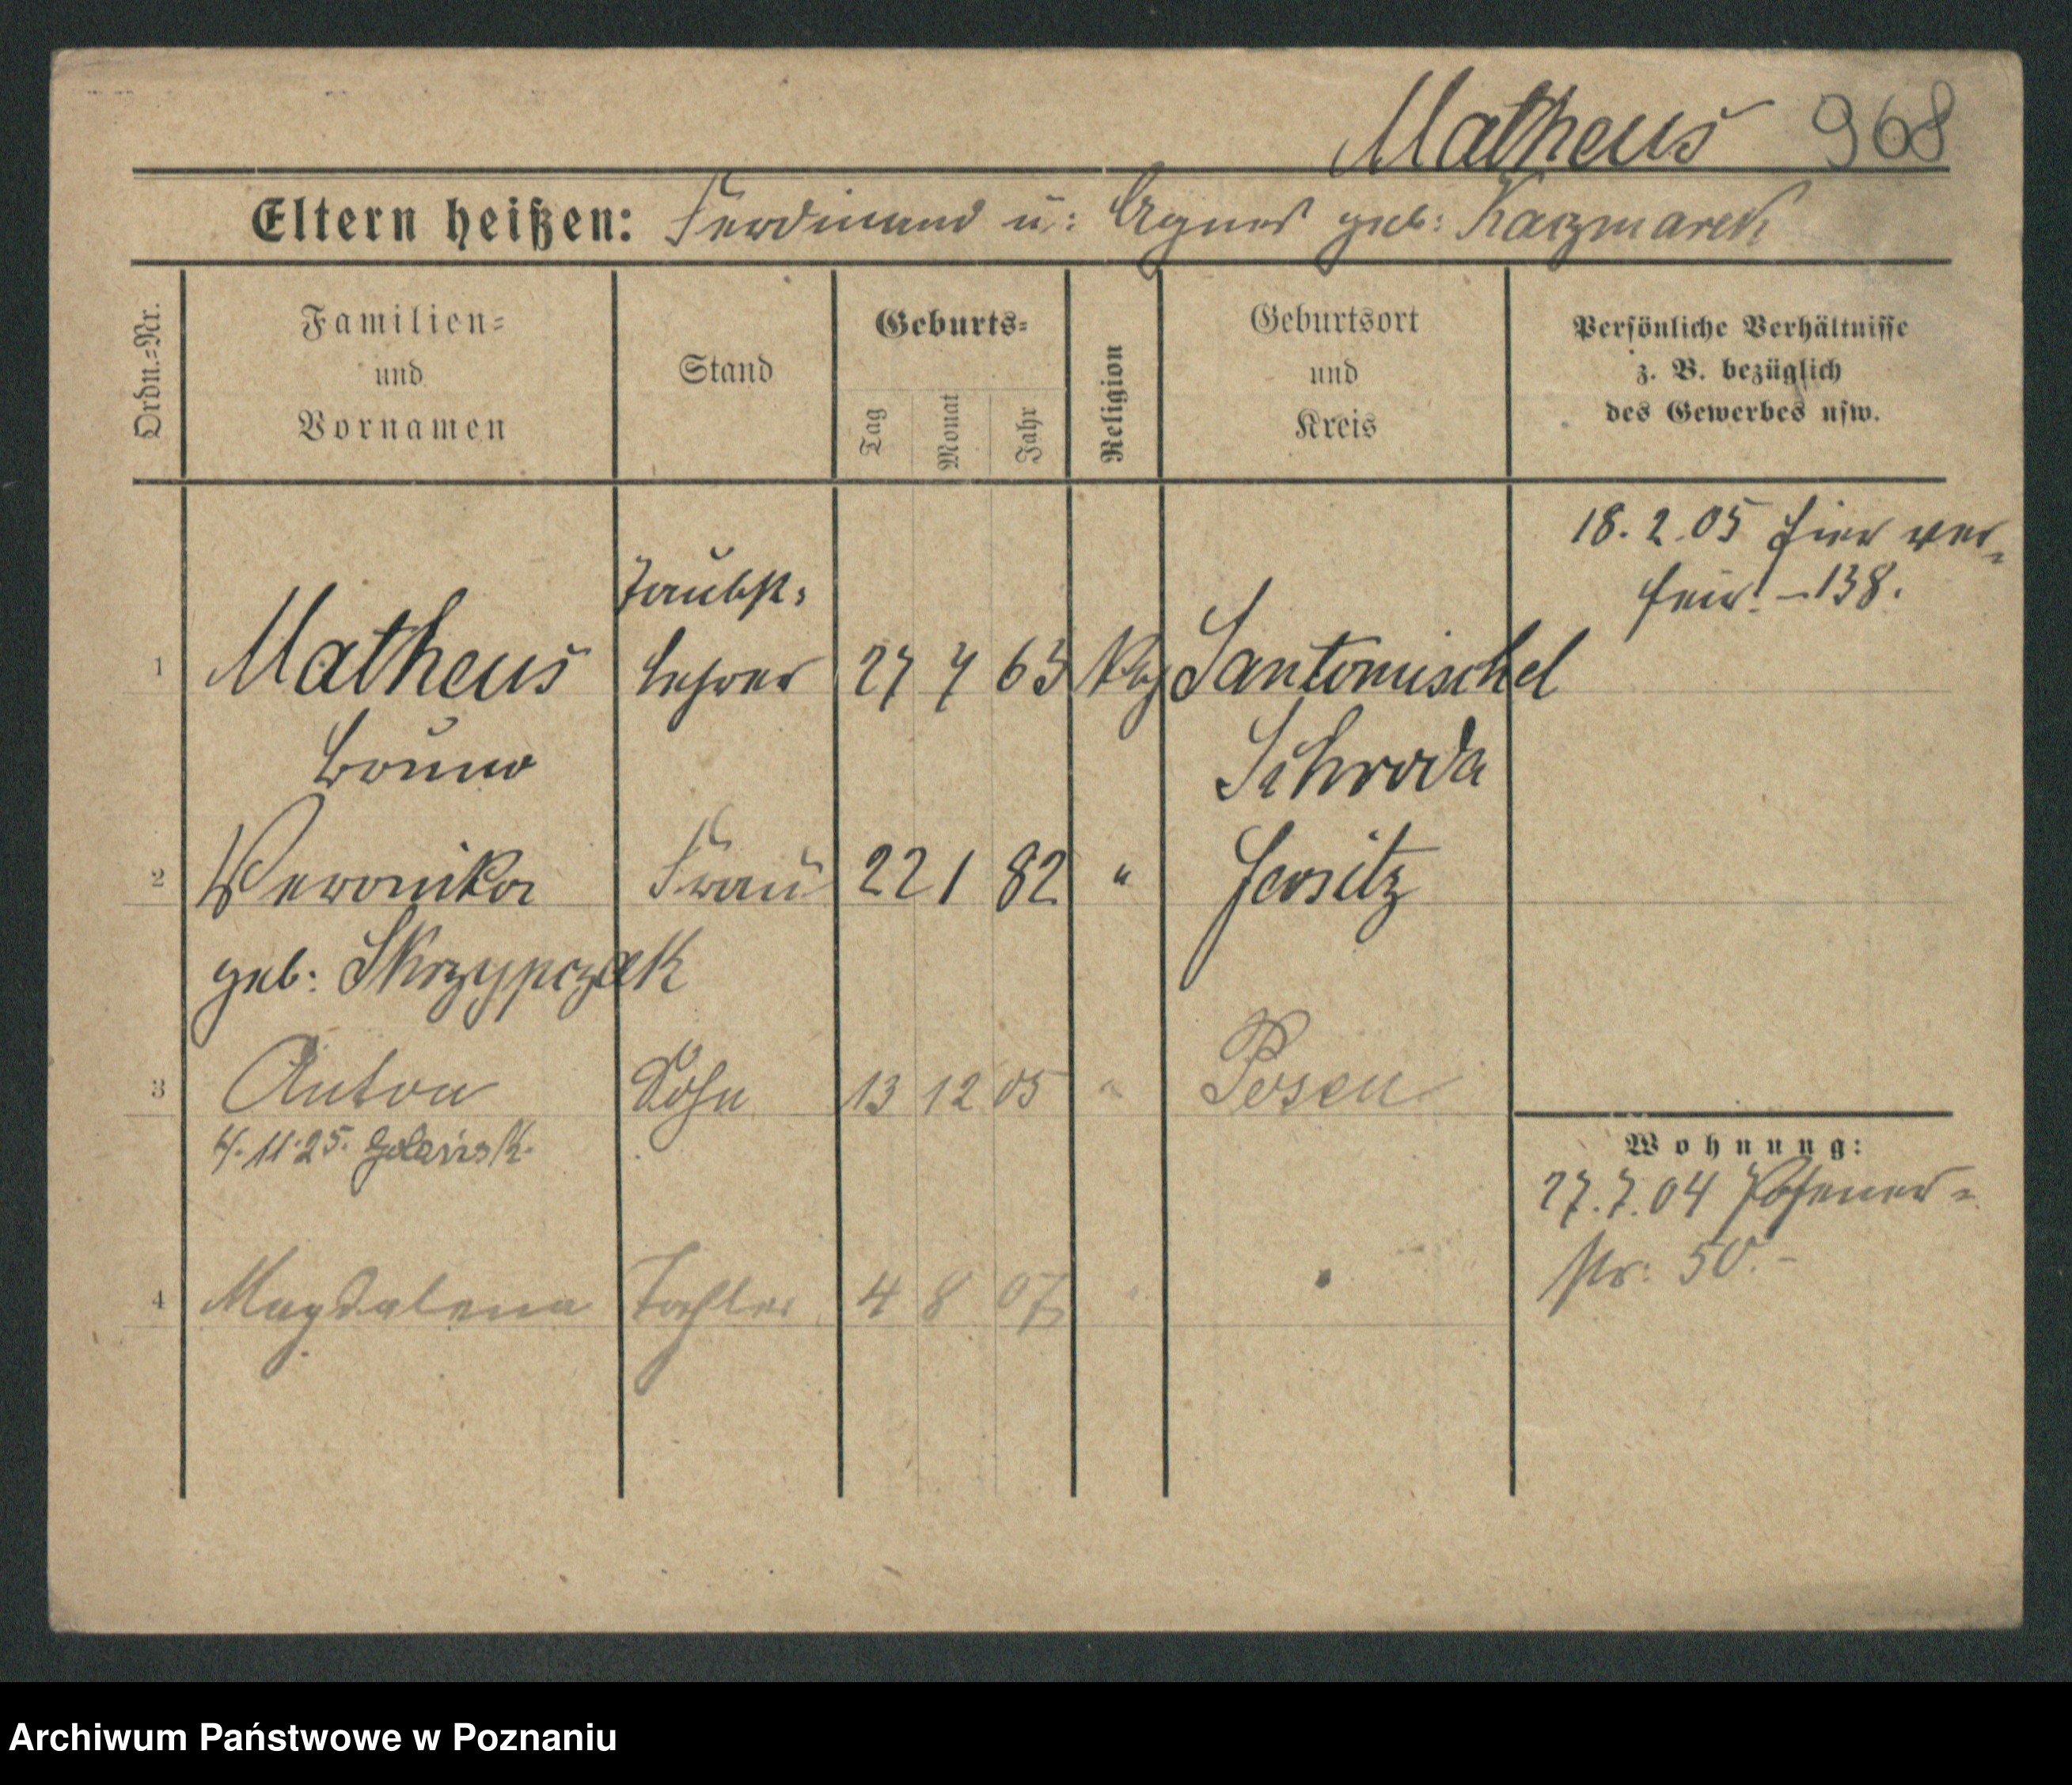 Matheus 968
Eltern heißen: Ferdinand u: Agnes geb: Kaczmarek
Ordn.-Nr.
Familien-
und
Vornamen
Stand
Geburts-
Tag
Monat
Jahr
Religion
Geburtsort
und
Kreis
Persönliche Verhältnisse
z. B. bezüglich
des Gewerbes usw.
18. 2. 05 hier ver-
heir. – 138.
Taubst:
1 Matheus Lehrer 27 7 63 Santomischel
Bruno Schroda
2 Veronika Frau 22 1 82 " Jersitz
geb: Skrzypczak
3 Anton Sohn 13 12 05 " Posen
4. 11. 25.
Wohnung:
27.7.04 Posener-
str: 50.-
4 Magdalena Tochter 4 8 07 "
Archiwum Państwowe w Poznaniu